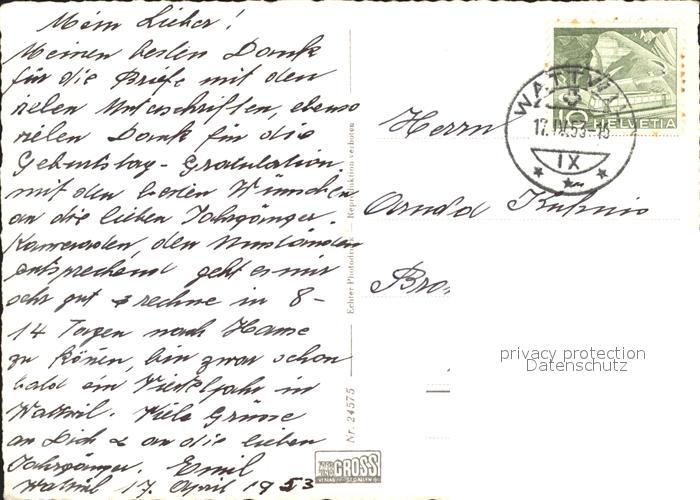 Mein Lieber!
Meinen besten Dank
für die Briefe mit den
vielen Unterschriften, ebenso
vielen Dank für die
Geburtstag-Gratulation
mit den besten Wünschen
an die lieben Jahrgänger.
Kameraden, den Umständen
entsprechend geht es mir
sehr gut & rechne in 8-
14 Tagen nach Hause
zu können, bin zwar schon
bald ein Vierteljahr in
Wattwil. Viele Grüsse
an Dich & an die lieben
Jahrgänger. Emil
Wattwil 17. April 1953
Nr. 24575
Echter Photodruck — Reproduktion verboten
GROSS
WATTWIL
17.IV.53-15
IX
HELVETIA
Herrn
Arnold
privacy protection
Datenschutz